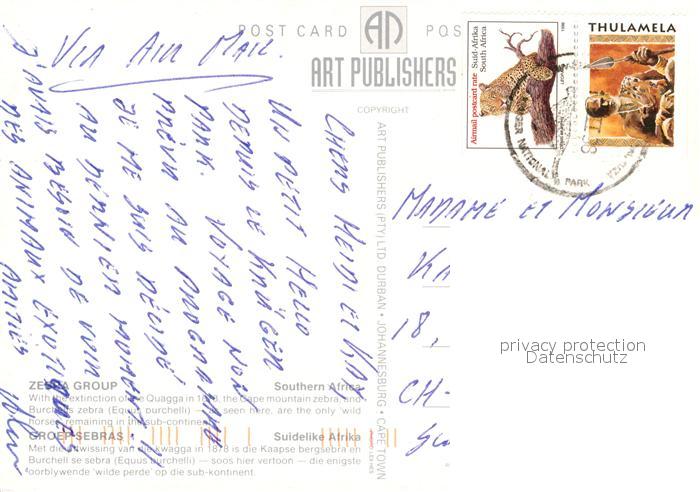 POST CARD
POS
ART PUBLISHERS
COPYRIGHT
ART PUBLISHERS (PTY) LTD. DURBAN • JOHANNESBURG • CAPE TOWN
Airmail postcard rate
Suid-Afrika
South Africa
1998
THULAMELA
KRUGER NATIONAL PARK
VIA AIR MAIL.
CHERS HEIDI ET KAY
UN PETIT HELLO
DEPUIS LE KRÜGER
PARK. VOYAGE NON
PRÉVU AU PROGRAMME
JE ME SUIS DÉCIDÉ
AU DERNIER MOMENT!
J'AVAIS BESOIN DE VOIR
DES ANIMAUX EXOTIQUES
AMITIÉS
MADAME ET MONSIEUR
KA
18,
CH-
privacy protection
Datenschutz
ZEBRA GROUP Southern Africa
With the extinction of the Quagga in 1878, the Cape mountain zebra, and
Burchell's zebra (Equus burchelli) — as seen here, are the only 'wild
horses' remaining in the sub-continent.
GROEP SEBRAS Suidelike Afrika
Met die uitwissing van die kwagga in 1878 is die Kaapse bergsebra en
Burchell se sebra (Equus burchelli) — soos hier vertoon — die enigste
oorblywende 'wilde perde' op die sub-kontinent.